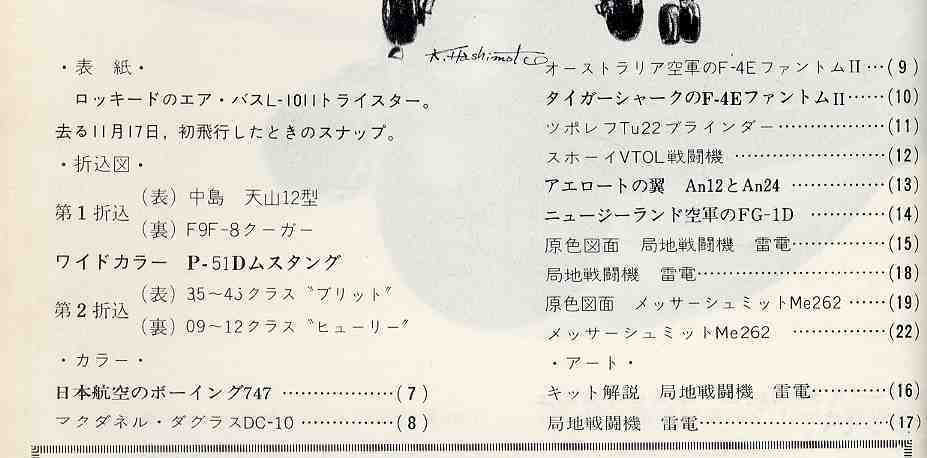 K. Hashimoto
・表　紙・
ロッキードのエア・バスL-1011トライスター。
去る11月17日，初飛行したときのスナップ。
・折込図・
第1折込
(表) 中島　天山12型
(裏) F9F-8クーガー
ワイドカラー　P-51Dムスタング
第2折込
(表) 35～45クラス〝ブリット〞
(裏) 09～12クラス〝ヒューリー〞
・カラー・
日本航空のボーイング747 ………………(7)
マクダネル・ダグラスDC-10 ……………(8)
オーストラリア空軍のF-4EファントムII…(9)
タイガーシャークのF-4EファントムII……(10)
ツポレフTu22ブラインダー………………(11)
スホーイVTOL戦闘機 ……………………(12)
アエロートの翼　An12とAn24 ……………(13)
ニュージーランド空軍のFG-1D …………(14)
原色図面　局地戦闘機　雷電……………(15)
局地戦闘機　雷電…………………………(18)
原色図面　メッサーシュミットMe262 ……(19)
メッサーシュミットMe262 ……………(22)
・アート・
キット解説　局地戦闘機　雷電…………(16)
局地戦闘機　雷電…………………………(17)